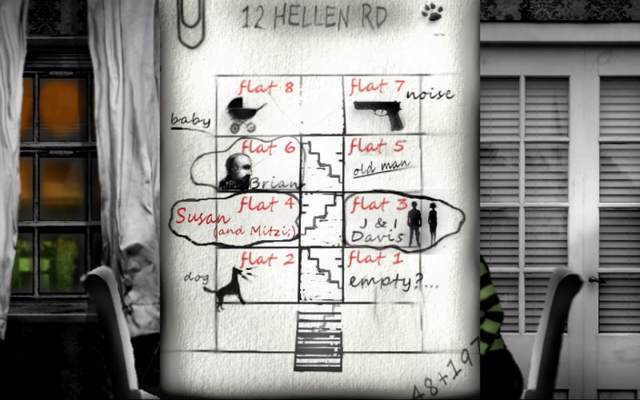 12 HELLEN RD
flat 8
flat 7
noise
baby
flat 6
flat 5
Brian
old man
flat 4
flat 3
Susan
(and Mitzi)
J & I
Davis
flat 2
flat 1
dog
empty?...
48+19